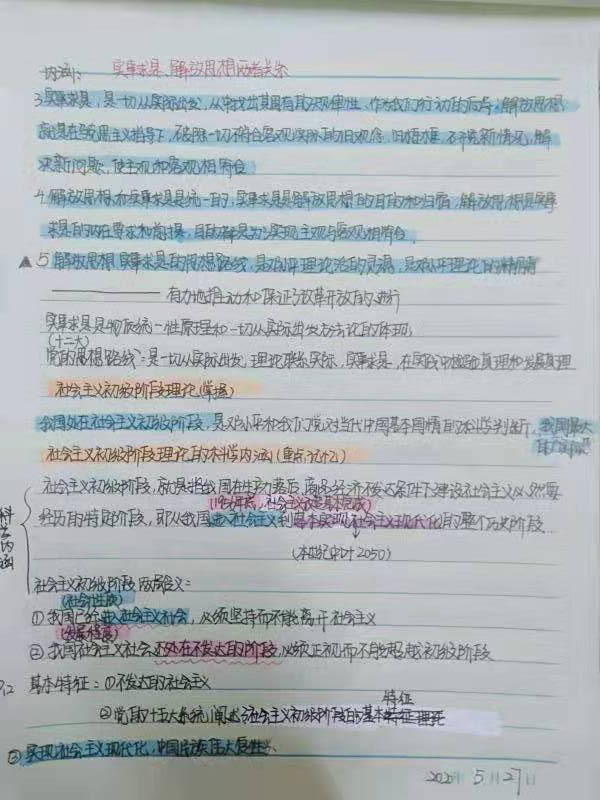 内涵: 实事求是、解放思想两者关系
3.实事求是,是一切从实际出发,从中找出其固有其次规律性,作为我们行动的向导;解放思想
就是在马克思主义指导下,破除一切不符合客观实际的旧观念,旧框框,不断研究新情况,解
决新问题,使主观和客观相符合
4.解放思想和实事求是是统一的,实事求是是解放思想的目的和归宿,解放思想是实事
求是的内在要求和前提,目的都是为了实现主观与客观相符合.
▲5.解放思想实事求是的思想路线,是邓小平理论活的灵魂,是邓小平理论的精髓
———— 有力地推动和保证了改革开放的进行
实事求是是物质统一性原理和一切从实际出发方法论的体现
(十二大)
党的思想路线:是一切从实际出发,理论联系实际,实事求是,在实践中检验真理和发展真理
社会主义初级阶段理论(掌握)
我国处在社会主义初级阶段,是邓小平和我们党对当代中国基本国情的科学判断, 我国最大
社会主义初级阶段理论的科学内涵(重点)
社会主义初级阶段,就是指我国在生产力落后,商品经济不发达条件下建设社会主义必然要
社会主义改造基本完成)
经历的特定阶段,即从我国进入社会主义到基本实现社会主义现代化的整个历史阶段…
(本世纪中叶2050)
科学内涵
社会主义初级阶段两层含义:
(社会性质)
①我国已经进入社会主义社会,必须坚持而不能离开社会主义
(发展程度)
②我国社会主义社会还处在不发达的阶段,必须正视而不能超越初级阶段
基本特征:①不发达的社会主义
特征
②党的十五大系统阐述了社会主义初级阶段的基本
③实现社会主义现代化,中国民族伟大复兴.
5 27